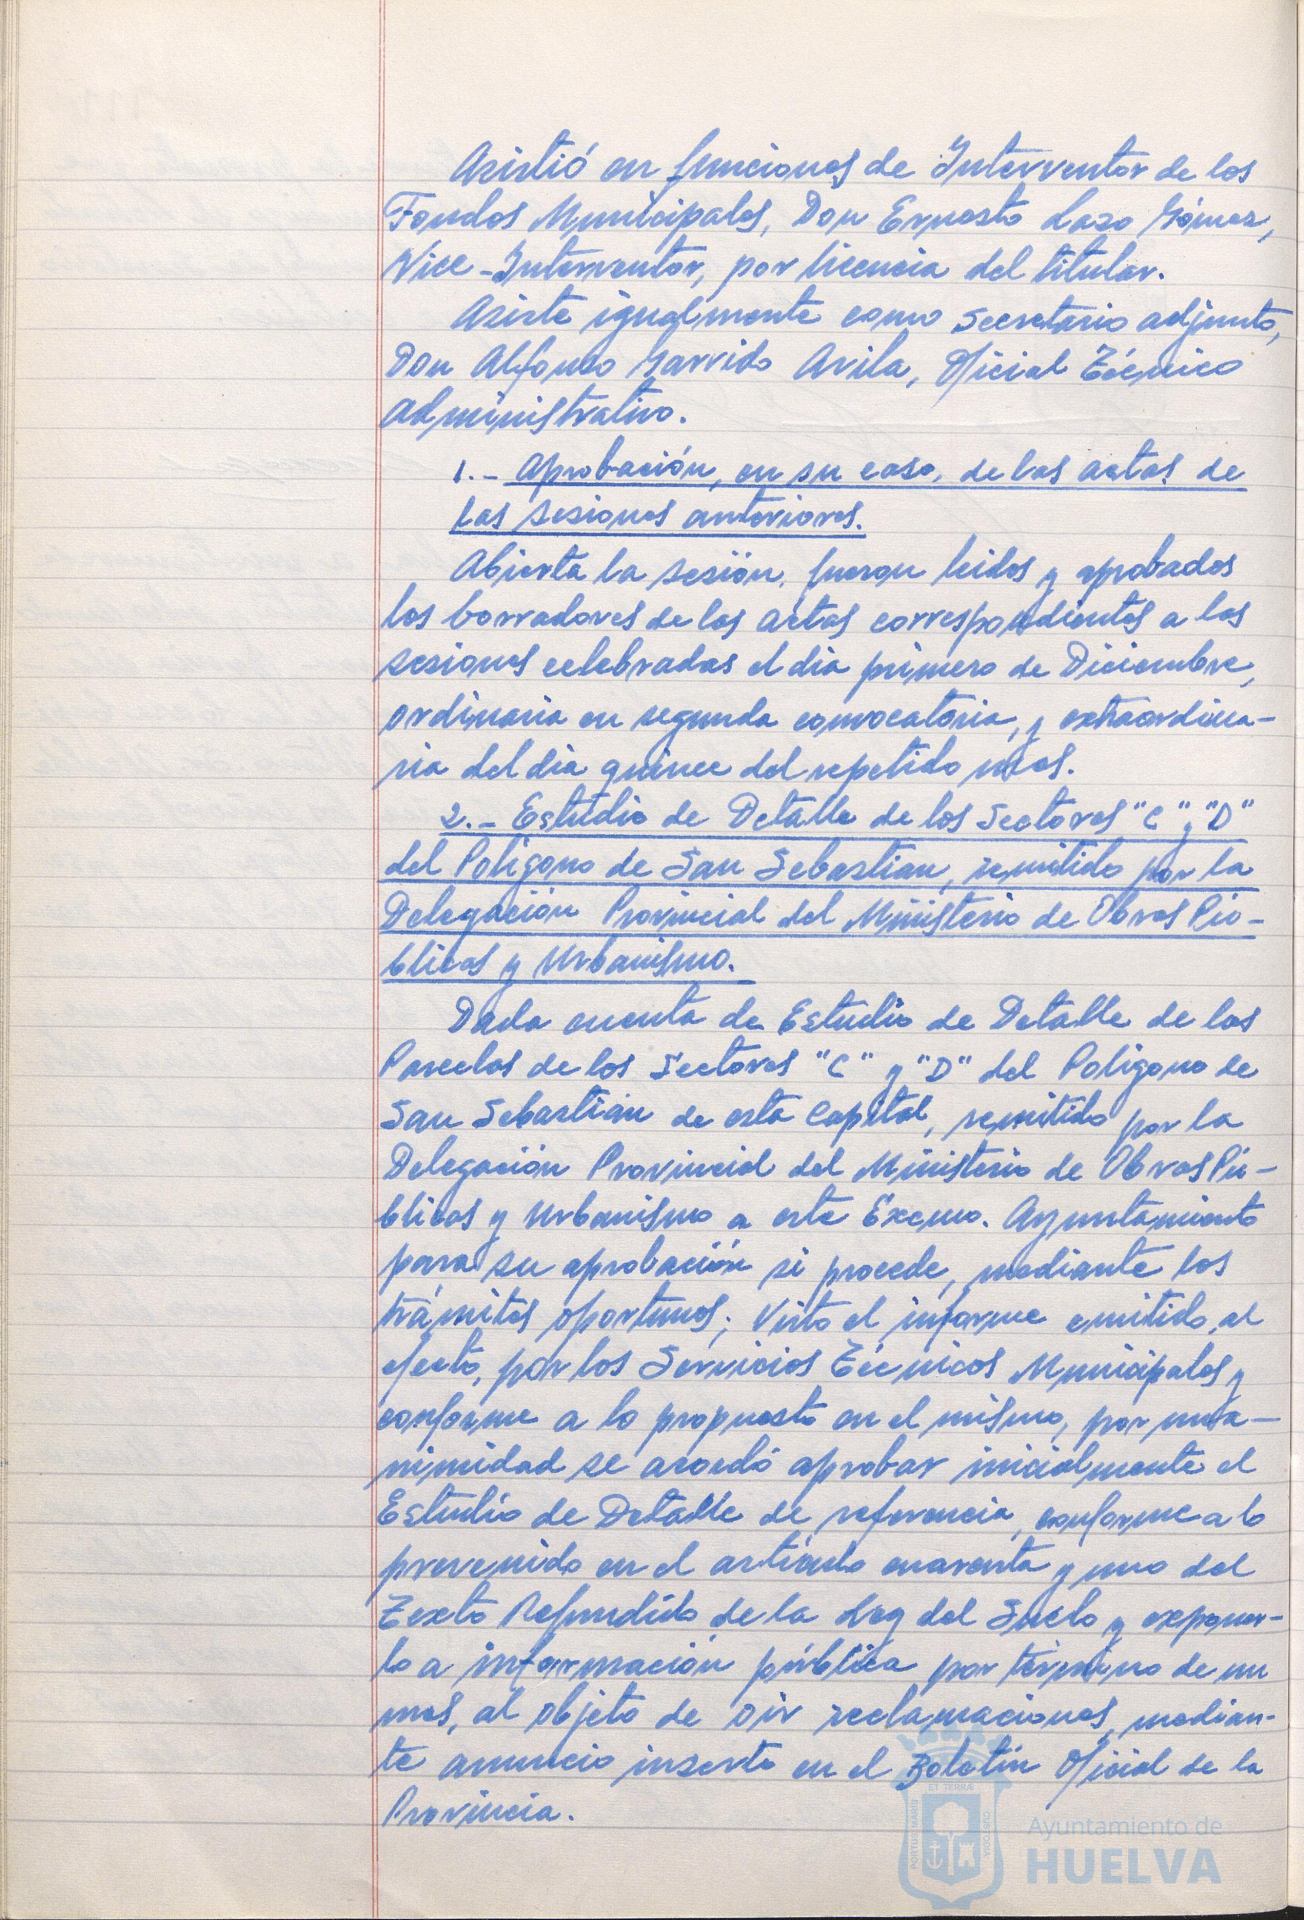 Asistió en funciones de Interventor de los
Fondos Municipales, Don Ernesto Lazo Gómez,
Vice-Interventor, por licencia del titular.
Asiste igualmente como Secretario adjunto,
Don Alfonso Garrido Avila, Oficial Técnico
Administrativo.
1.- Aprobación, en su caso, de las actas de
las sesiones anteriores.
Abierta la sesión, fueron leidos y aprobados
los borradores de las actas correspondientes a las
sesiones celebradas el dia primero de Diciembre,
ordinaria en segunda convocatoria, y extraordina-
ria del dia quince del repetido mes.
2.- Estudio de Detalle de los Sectores "C" y "D"
del Polígono de San Sebastian, remitido por la
Delegación Provincial del Ministerio de Obras Pú-
blicas y Urbanismo.
Dada cuenta de Estudio de Detalle de las
Parcelas de los Sectores "C" y "D" del Polígono de
San Sebastián de esta Capital, remitido por la
Delegación Provincial del Ministerio de Obras Pú-
blicas y Urbanismo a este Excmo. Ayuntamiento
para su aprobación si procede, mediante los
trámites oportunos; Visto el informe emitido, al
efecto, por los Servicios Técnicos Municipales y
conforme a lo propuesto en el mismo, por una-
nimidad se acordó aprobar inicialmente el
Estudio de Detalle de referencia, conforme a lo
prevenido en el artículo cuarenta y uno del
Texto Refundido de la Ley del Suelo y exponer-
lo a información pública por término de un
mes, al objeto de oir reclamaciones, median-
te anuncio inserto en el Boletín Oficial de la
Provincia.
PORTUS MARIS
ET TERRÆ
CUSTODIA
Ayuntamiento de
HUELVA